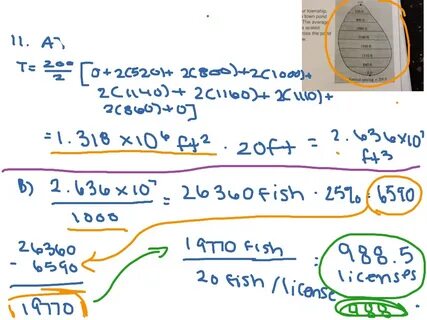 11. A)
T = 200/2 [0+2(520)+2(800)+2(1000)+
2(1140)+2(1160)+2(1110)+
2(860)+0]
= 1.318 × 10⁶ ft² · 20ft = 2.636×10⁷ ft³
B) 2.636×10⁷/1000 = 26360 Fish · 25% = 6590
26360
- 6590
19770
19770 Fish / 20 fish/license = 988.5 licenses
988